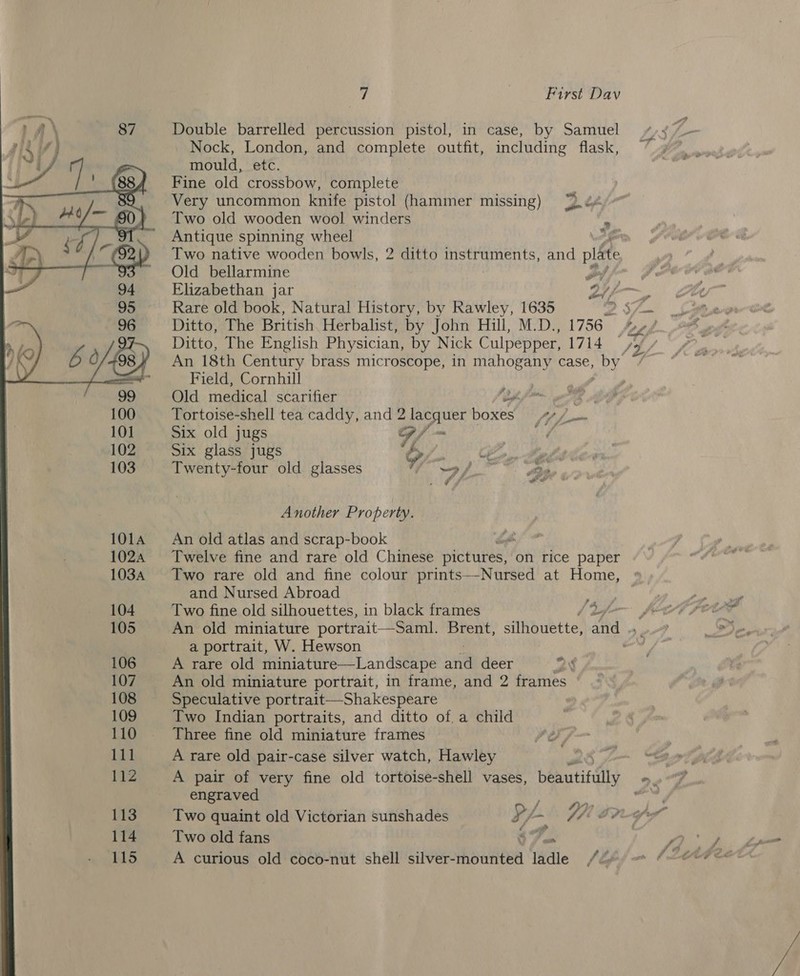 7 First Day
87 Double barrelled percussion pistol, in case, by Samuel
Nock, London, and complete outfit, including flask,
mould, etc.
88 Fine old crossbow, complete
89 Very uncommon knife pistol (hammer missing)
90 Two old wooden wool winders
91 Antique spinning wheel
92 Two native wooden bowls, 2 ditto instruments, and plate
93 Old bellarmine
94 Elizabethan jar
95 Rare old book, Natural History, by Rawley, 1635
96 Ditto, The British Herbalist, by John Hill, M.D., 1756
97 Ditto, The English Physician, by Nick Culpepper, 1714
98 An 18th Century brass microscope, in mahogany case, by
Field, Cornhill
99 Old medical scarifier
100 Tortoise-shell tea caddy, and 2 lacquer boxes
101 Six old jugs
102 Six glass jugs
103 Twenty-four old glasses
Another Property.
101A An old atlas and scrap-book
102A Twelve fine and rare old Chinese pictures, on rice paper
103A Two rare old and fine colour prints—Nursed at Home,
and Nursed Abroad
104 Two fine old silhouettes, in black frames
105 An old miniature portrait—Saml. Brent, silhouette, and
a portrait, W. Hewson
106 A rare old miniature—Landscape and deer
107 An old miniature portrait, in frame, and 2 frames
108 Speculative portrait—Shakespeare
109 Two Indian portraits, and ditto of a child
110 Three fine old miniature frames
111 A rare old pair-case silver watch, Hawley
112 A pair of very fine old tortoise-shell vases, beautifully
engraved
113 Two quaint old Victorian sunshades
114 Two old fans
115 A curious old coco-nut shell silver-mounted ladle